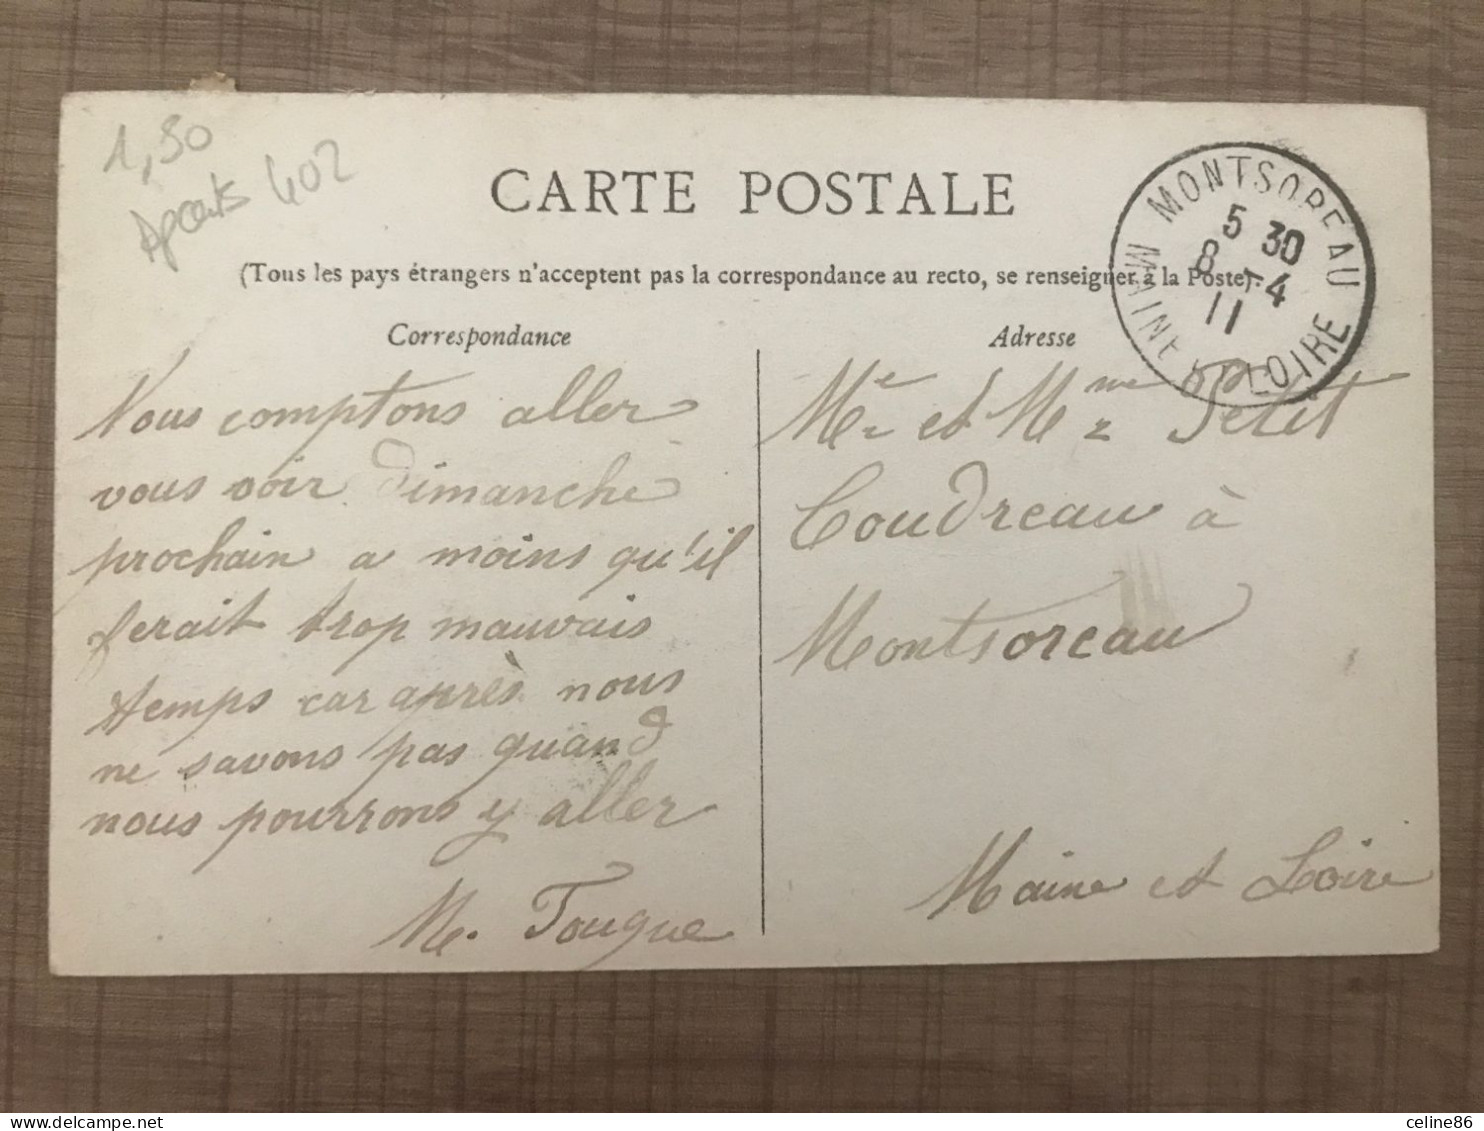 1,50
402
CARTE POSTALE
(Tous les pays étrangers n'acceptent pas la correspondance au recto, se renseigner à la Poste).
MONTSOREAU
5 30
8 - 4
11
MAINE ET LOIRE
Correspondance
Nous comptons aller
vous voir Dimanche
prochain a moins qu'il
ferait trop mauvais
temps car après nous
ne savons pas quand
nous pourrons y aller
M. Tougue
Adresse
Mr et Mme Petit
Coudreau à
Montsoreau
Maine et Loire
celine86